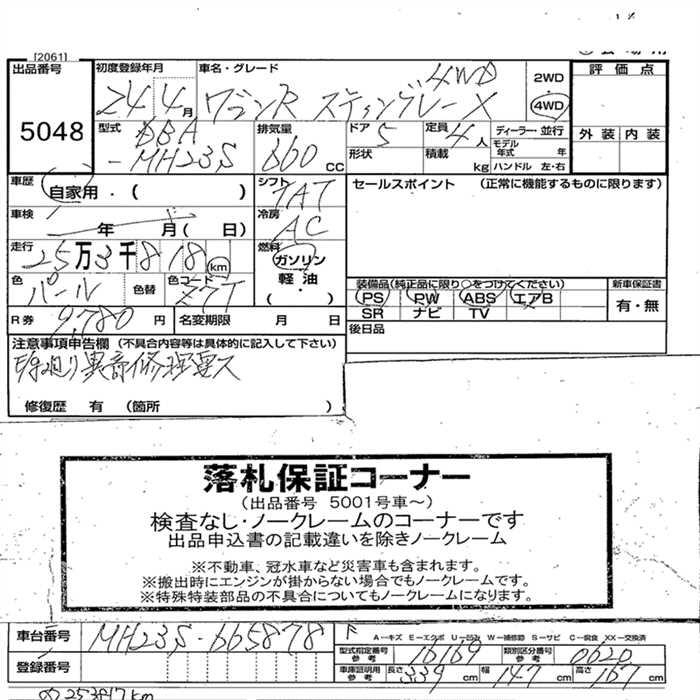 [2061]
出品番号
5048
初度登録年月
24 4月
車名・グレード
4WD
ワゴンR スティングレー X
2WD
4WD
評価点
外装 内装
型式
DBA
-MH23S
排気量
660cc
ドア 5
定員 4人
形状
積載 kg
ディーラー・並行
モデル年式 年
ハンドル 左・右
車歴
自家用・( )
シフト
IAT
セールスポイント (正常に機能するものに限ります)
車検
年 月( 日)
冷房
AC
走行
25万3千818km
燃料
ガソリン
軽油
( ・ )
色
パール
色替
色コード
Z7T
装備品(純正品に限り○をつけてください)
PS PW ABS エアB
SR ナビ TV
新車保証書
有・無
R券 9,780円
名変期限 月 日
後日品
注意事項申告欄 (不具合内容等は具体的に記入して下さい)
異音修理要ス
修復歴 有 (箇所 )
落札保証コーナー
(出品番号 5001号車～)
検査なし・ノークレームのコーナーです
出品申込書の記載違いを除きノークレーム
※不動車、冠水車など災害車も含まれます。
※搬出時にエンジンが掛からない場合でもノークレームです。
※特殊特装部品の不具合についてもノークレームになります。
車台番号
MH23S-665878
A-キズ E-エクボ U-凹み W-補修跡 S-サビ C-腐食 XX-交換済
型式指定番号
参考
16169
類別区分番号
参考
0620
登録番号
車庫証明用
参考
長さ 339cm 幅 147cm 高さ 167cm
253817km